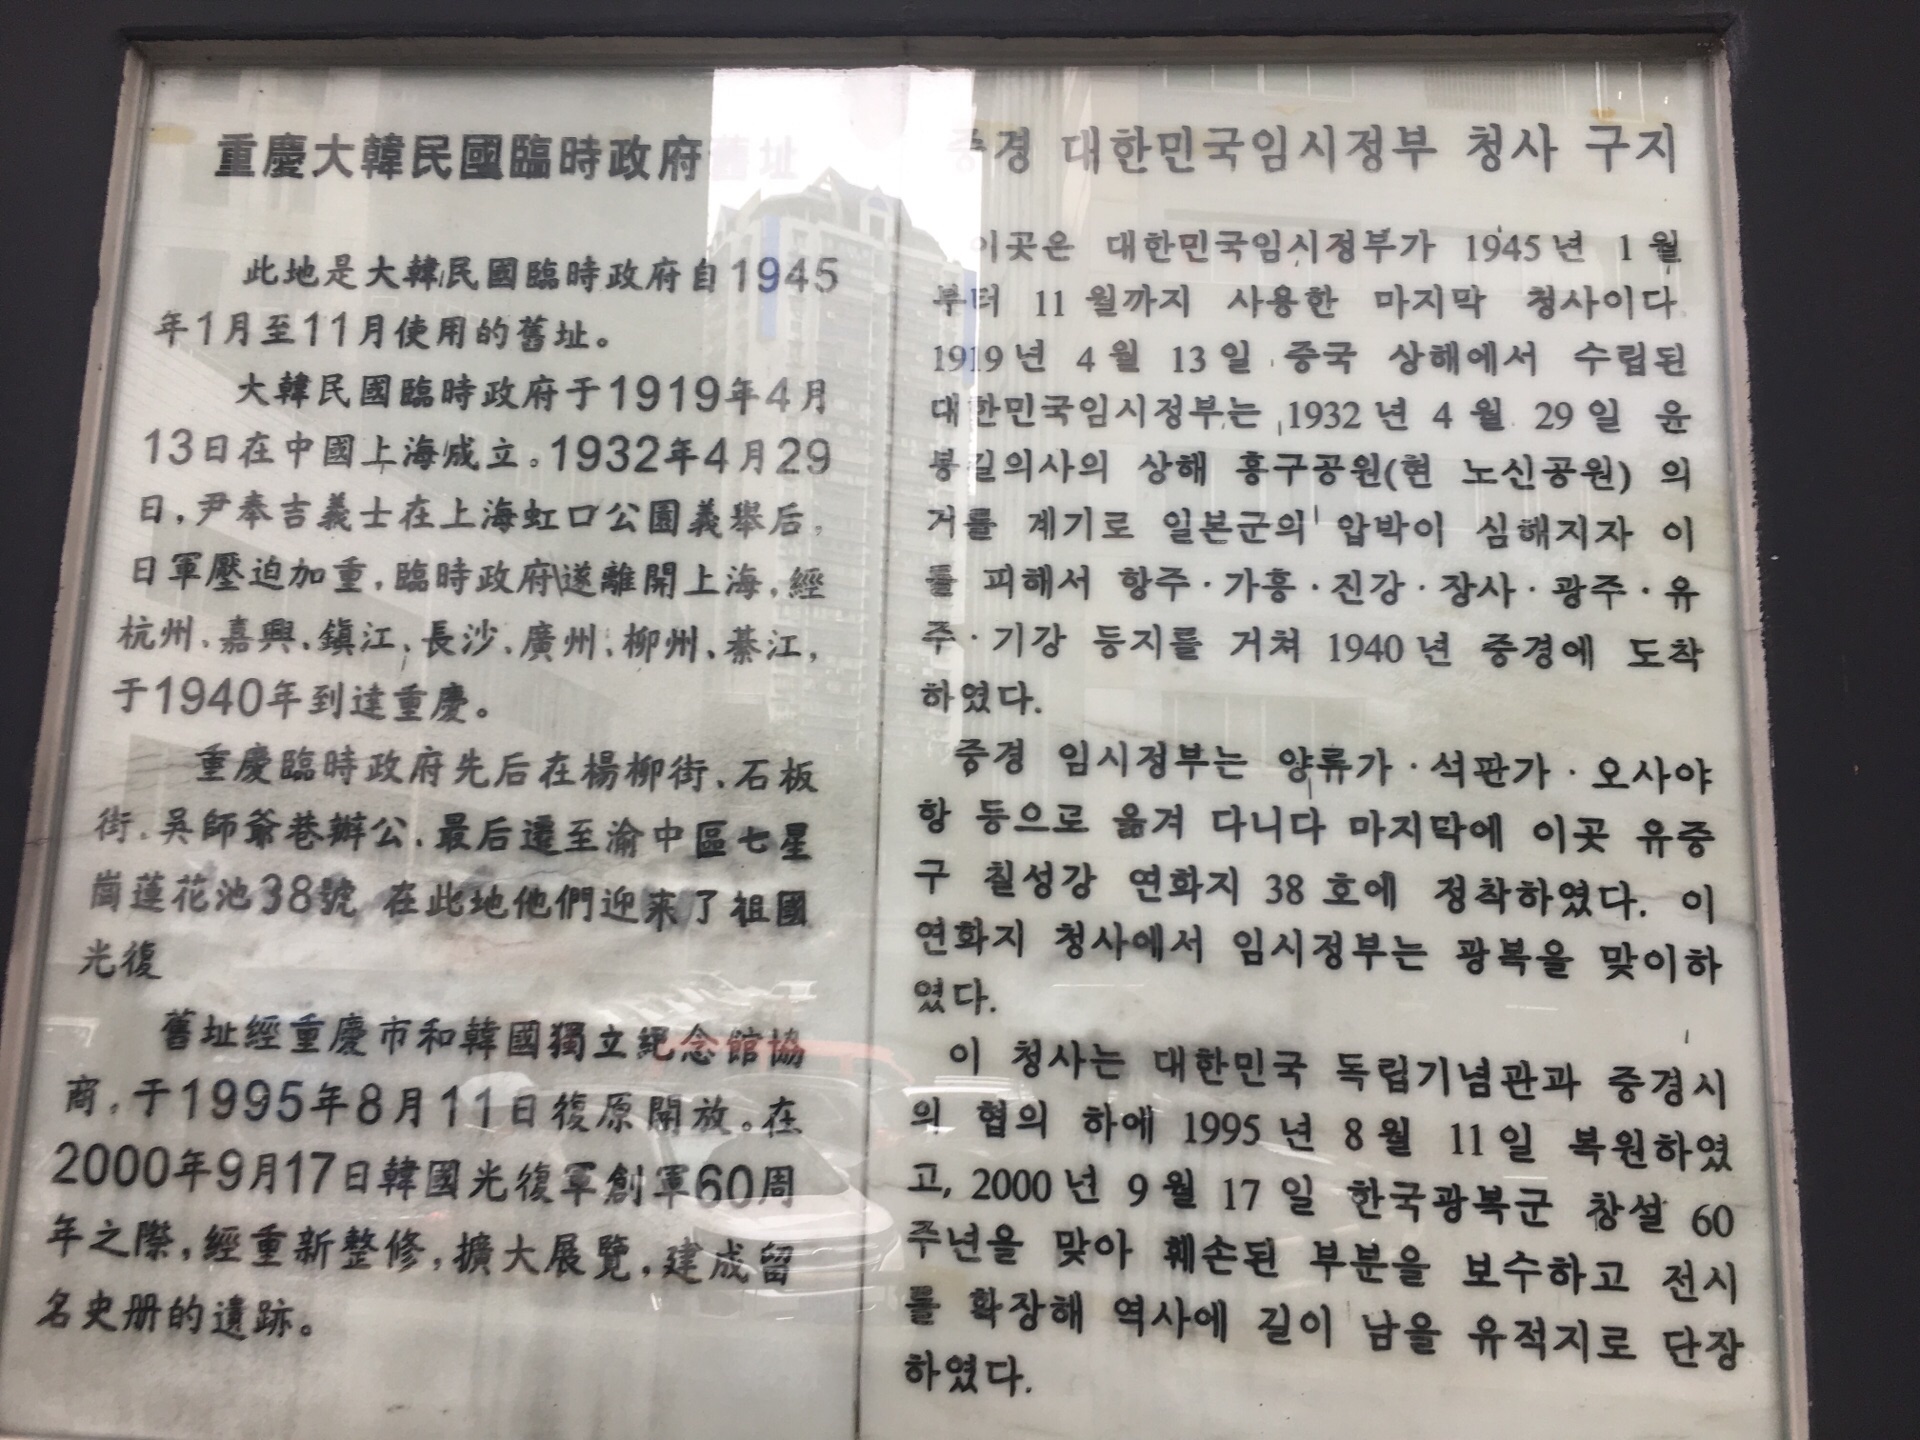 重慶大韓民國臨時政府舊址
此地是大韓民國臨時政府自1945
年1月至11月使用的舊址。
大韓民國臨時政府于1919年4月
13日在中國上海成立。1932年4月29
日,尹奉吉義士在上海虹口公園義舉后,
日軍壓迫加重,臨時政府遂離開上海,經
杭州、嘉興、鎮江、長沙、廣州、柳州、綦江,
于1940年到達重慶。
重慶臨時政府先后在楊柳街、石板
街、吳師爺巷辦公、最后遷至渝中區七星
崗蓮花池38號 在此地他們迎来了祖國
光復
舊址經重慶市和韓國獨立紀念館協
商,于1995年8月11日復原開放。在
2000年9月17日韓國光復軍創軍60周
年之際,經重新整修,擴大展覽,建成留
名史册的遺跡。
중경 대한민국임시정부 청사 구지
이곳은 대한민국임시정부가 1945년 1월
부터 11월까지 사용한 마지막 청사이다
1919년 4월 13일 중국 상해에서 수립된
대한민국임시정부는 1932년 4월 29일 윤
봉길의사의 상해 홍구공원(현 노신공원) 의
거를 계기로 일본군의 압박이 심해지자 이
를 피해서 항주·가흥·진강·장사·광주·유
주·기강 등지를 거쳐 1940년 중경에 도착
하였다.
중경 임시정부는 양류가·석판가·오사야
항 등으로 옮겨 다니다 마지막에 이곳 유중
구 칠성강 연화지 38호에 정착하였다. 이
연화지 청사에서 임시정부는 광복을 맞이하
였다.
이 청사는 대한민국 독립기념관과 중경시
의 협의 하에 1995년 8월 11일 복원하였
고, 2000년 9월 17일 한국광복군 창설 60
주년을 맞아 훼손된 부분을 보수하고 전시
를 확장해 역사에 길이 남을 유적지로 단장
하였다.